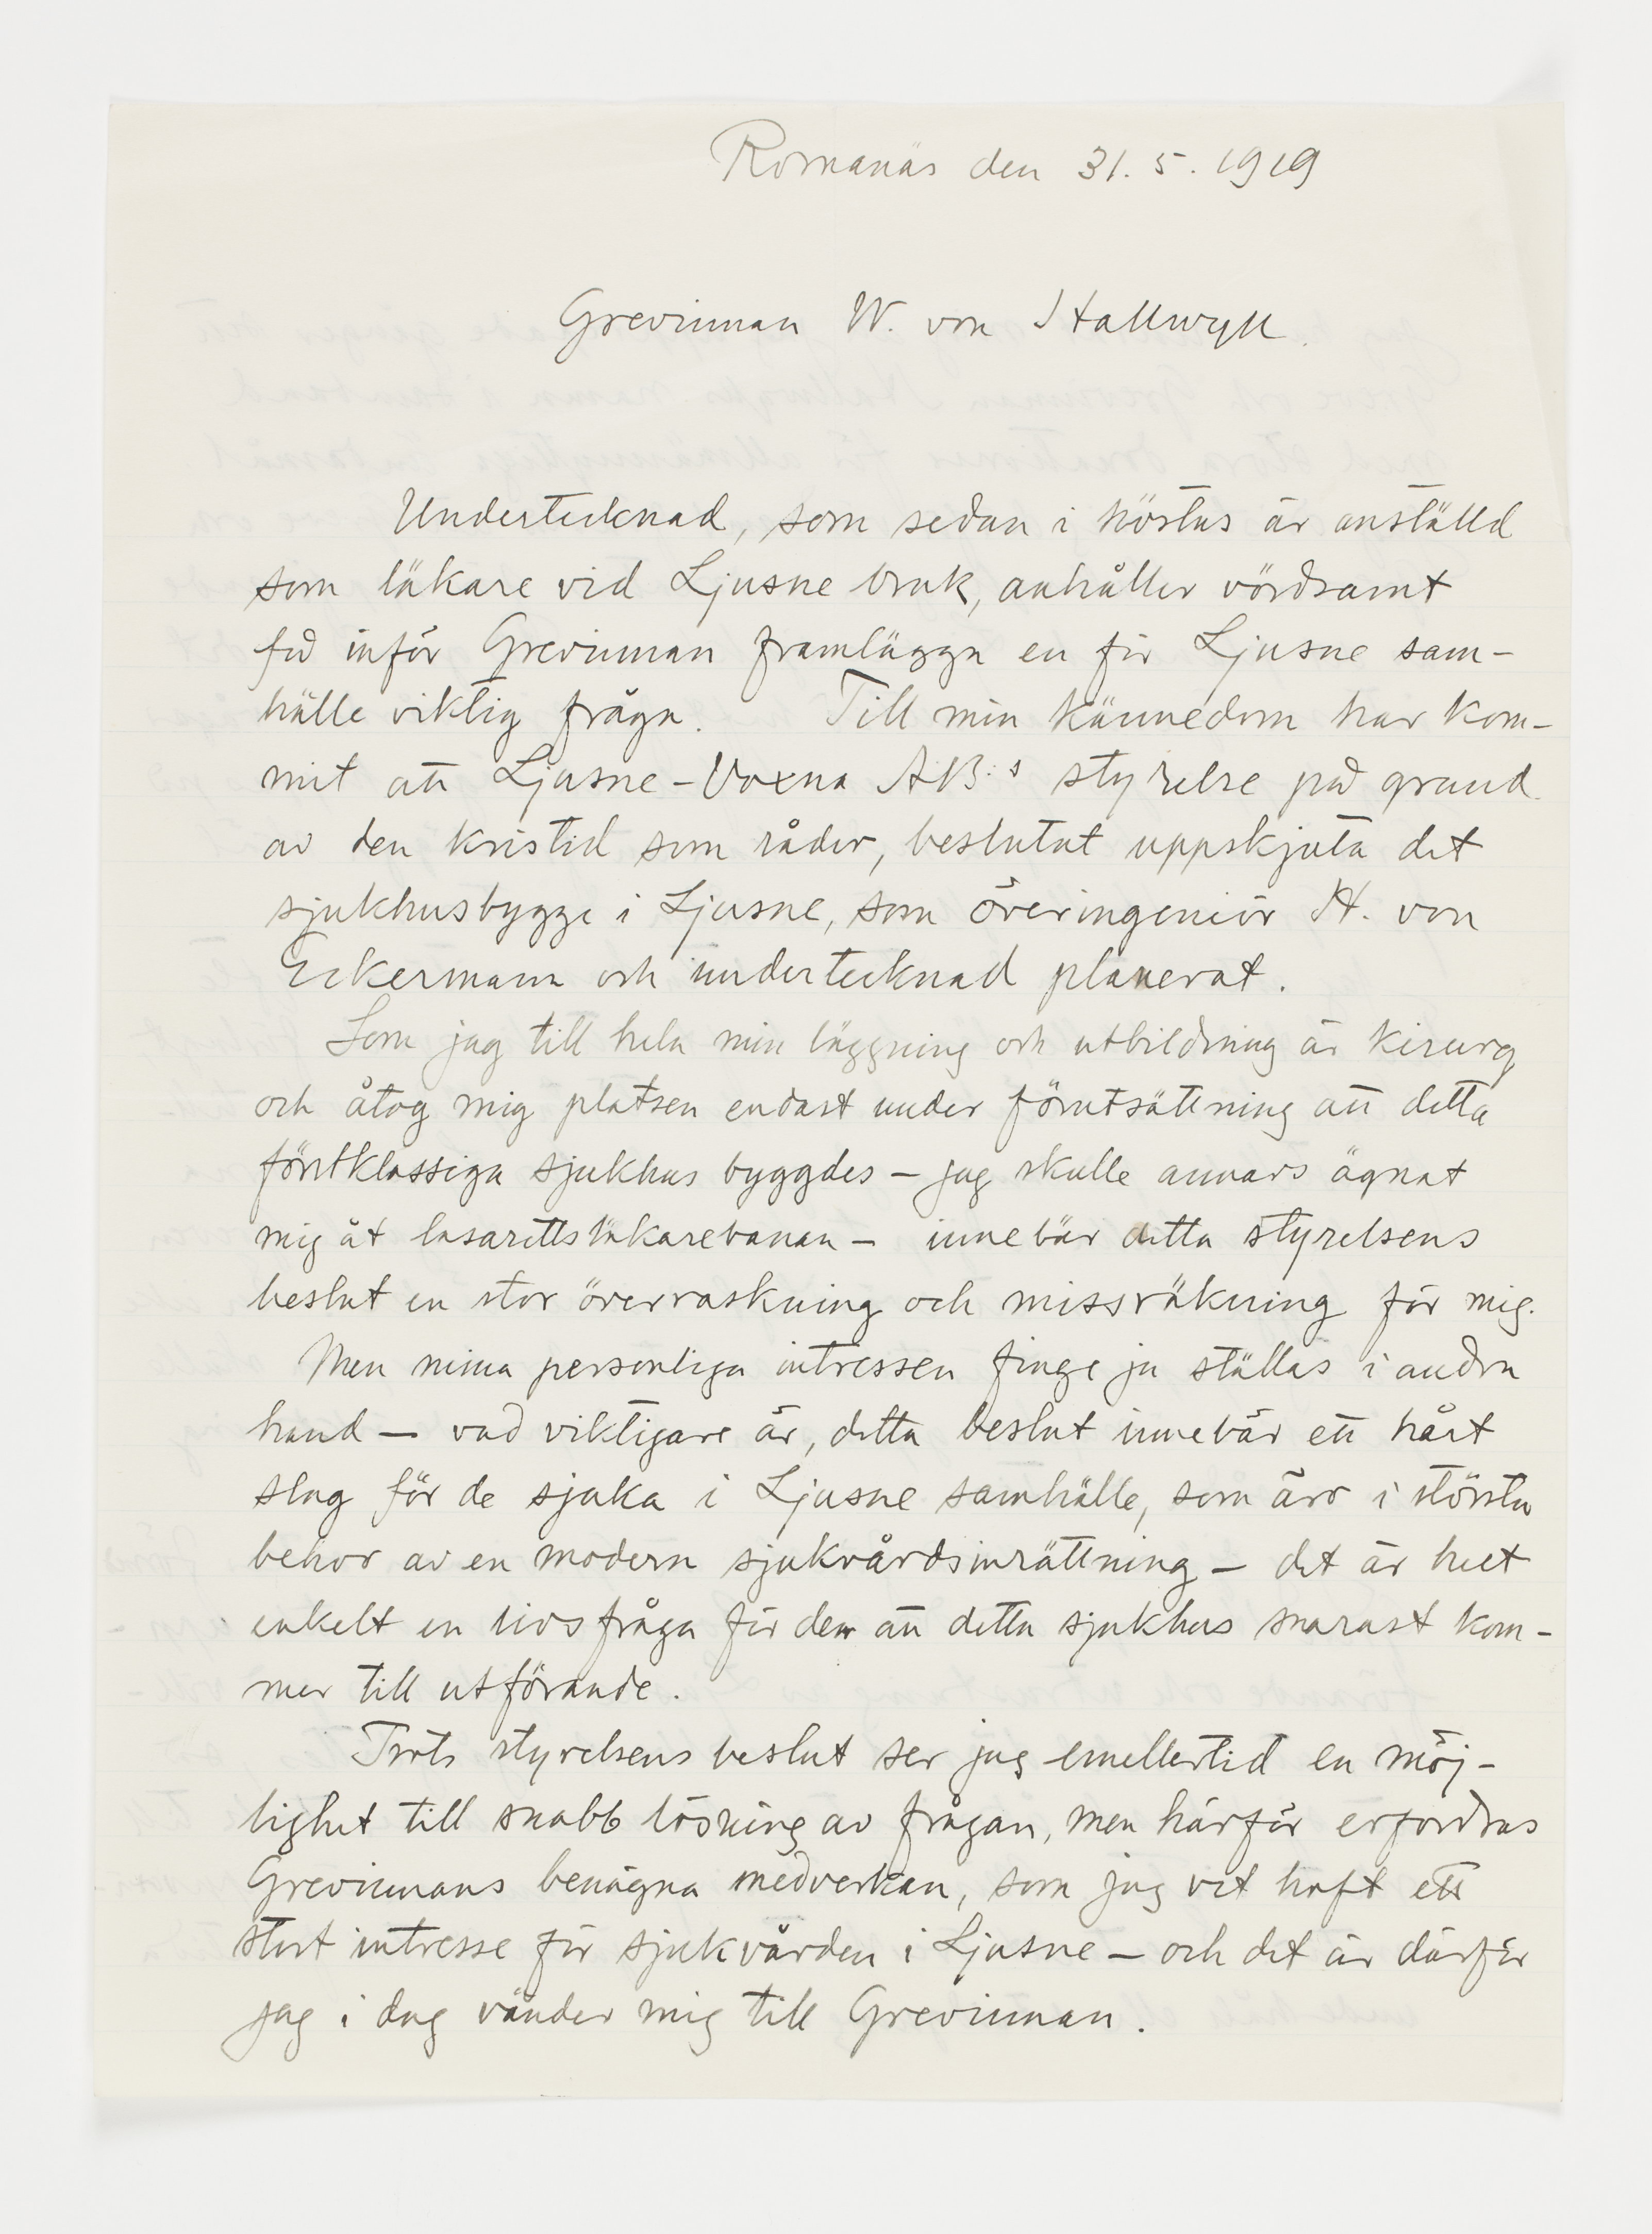 Romanäs den 31. 5. 1919
Grevinnan W. von Hallwyll.
Undertecknad, som sedan i höstas är anställd
som läkare vid Ljusne bruk, anhåller vördsamt
få inför Grevinnan framlägga en för Ljusne sam-
hälle viktig fråga. Till min kännedom har kom-
mit att Ljusne-Voxna AB:s styrelse på grund
av den kristid som råder, beslutat uppskjuta det
sjukhusbygge i Ljusne, som överingeniör H. von
Eckermann och undertecknad planerat.
Som jag till hela min läggning och utbildning är kirurg
och åtog mig platsen endast under förutsättning att detta
förstklassiga sjukhus byggdes – jag skulle annars ägnat
mig åt lasarettsläkarebanan – innebär detta styrelsens
beslut en stor överraskning och missräkning för mig.
Men mina personliga intressen finge ju ställas i andra
hand – vad viktigare är, detta beslut innebär ett hårt
slag för de sjuka i Ljusne samhälle, som äro i största
behov av en modern sjukvårdsinrättning – det är helt
enkelt en livsfråga för dem att detta sjukhus snarast kom-
mer till utförande.
Trots styrelsens beslut ser jag emellertid en möj-
lighet till snabb lösning av frågan, men härför erfordras
Grevinnans benägna medverkan, som jag vet haft ett
stort intresse för sjukvården i Ljusne – och det är därför
jag i dag vänder mig till Grevinnan.